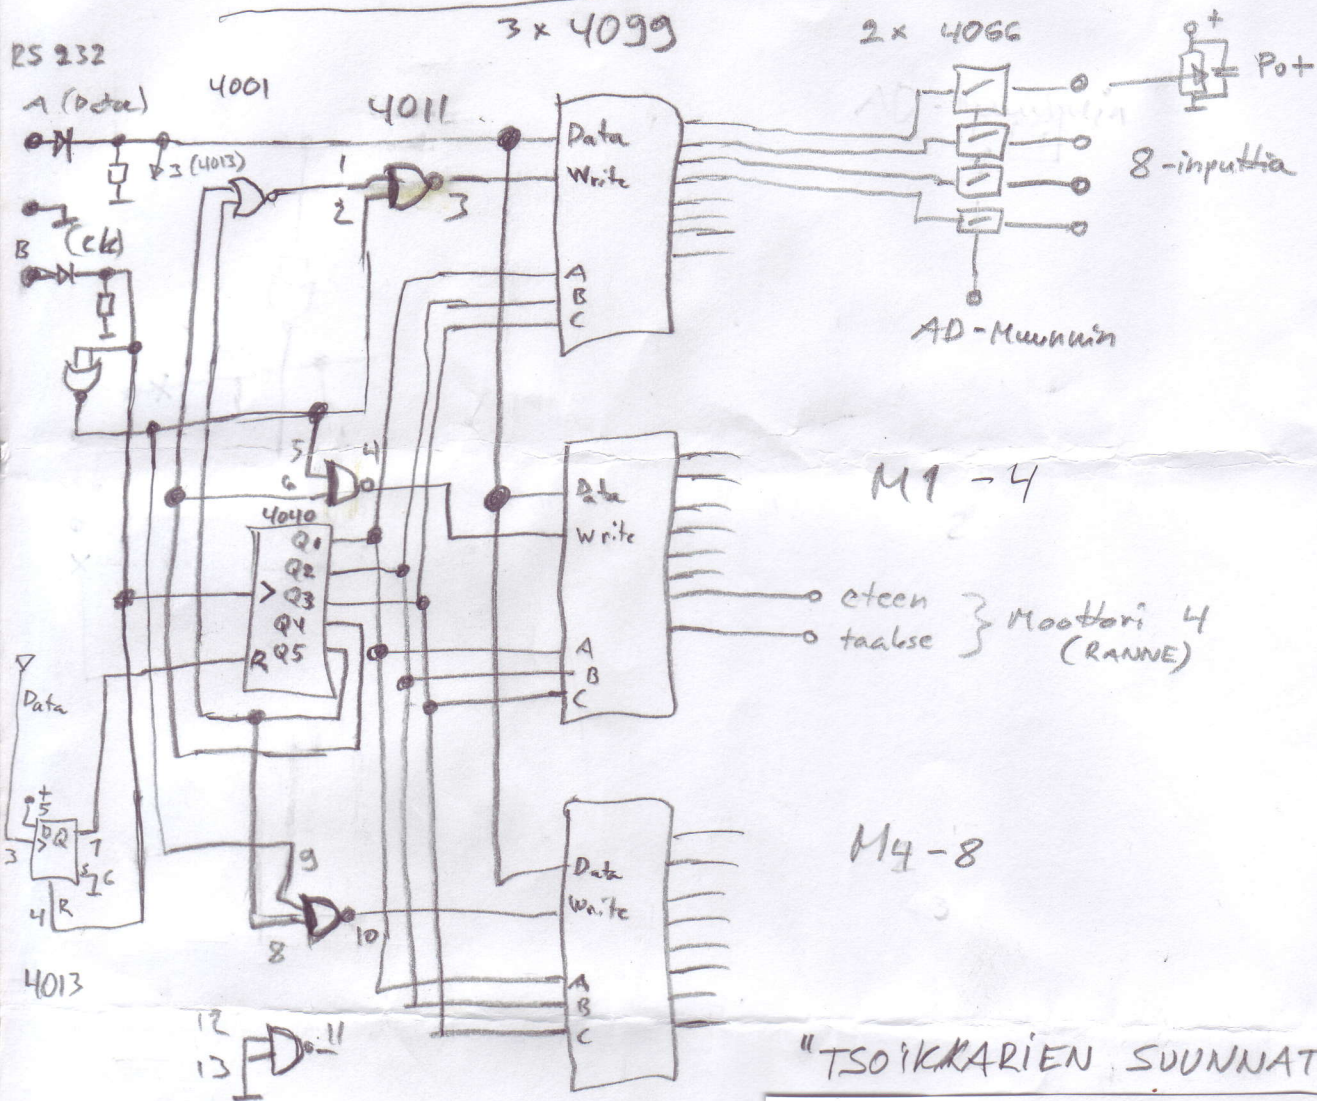 3 x 4099
2 x 4066
+
Pot
RS 232
A (Data)
4001
4011
3 (4013)
1
2
3
Data
Write
A
B
C
8-inputtia
AD-Muunnin
B (clk)
5
4
6
4040
Q1
Q2
Q3
Q4
Q5
R
Data
Write
A
B
C
M1 - 4
eteen
taakse
Moottori 4
(RANNE)
Data
+
5
D Q
3
1
S
6
4
R
4013
9
8
10
Data
Write
A
B
C
M4 - 8
12
13
11
"TSOIKKARIEN SUUNNAT